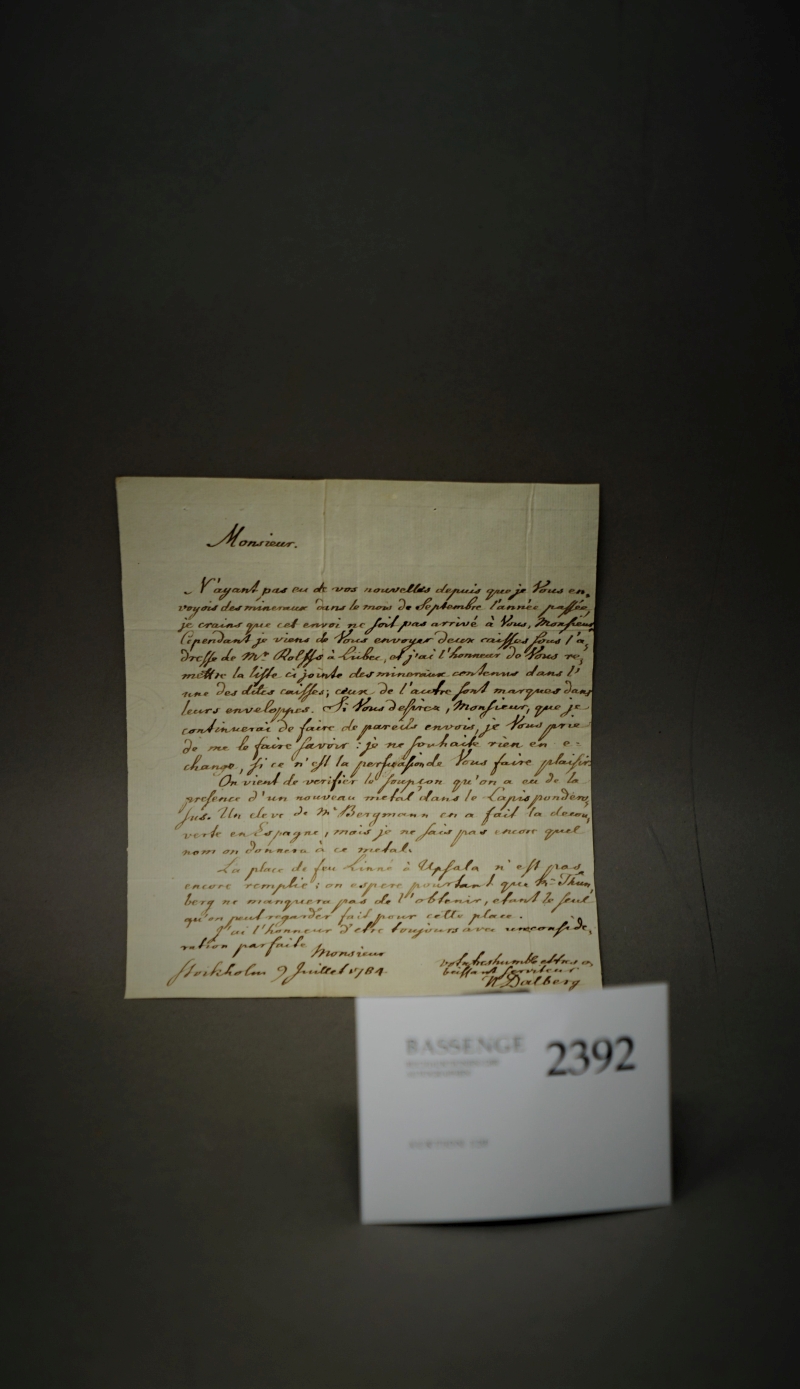 Monsieur.
N'ayant pas eu de vos nouvelles depuis que je Vous en,
voyois des mineraux dans le mois de Septembre l'année passée,
je crains que cet envoi ne soit pas arrivé à Vous, Monsieur
Cependant je viens de Vous envoyer deux caisses sous l'a,
dresse de Mr. Rolffs à Lubec, et j'ai l'honneur de Vous re,
mettre la liste ci jointe des mineraux contenus dans l'
une des dites caisses; ceux de l'autre sont marqués dans
leurs enveloppes. Si Vous desirez, Monsieur, que je
continuerai de faire de pareils envois, je Vous prie
de me le faire savoir: je ne souhaite rien en e-
change, si ce n'est la persuasion de Vous faire plaisir.
On vient de verifier le soupçon qu'on a eu de la
presence d'un nouveau metal dans le Lapis pondero,
sus. Un eleve de Mr Bergmann en a fait la decou,
verte en Espagne, mais je ne sais pas encore quel
nom on donnera à ce metal.
La place de feu Linné à Upsala n'est pas
encore remplie; on espere pourtant que Mr. Thun,
berg ne manquera pas de l'obtenir, etant le seul
qu'on peut regarder fait pour cette place.
J'ai l'honneur d'etre toujours avec une conside,
ration parfaite
Monsieur
Stockholm 9 Juillet 1784
votre tres humble et tres o,
beissant Serviteur
N Dalberg
BASSENGE
2392